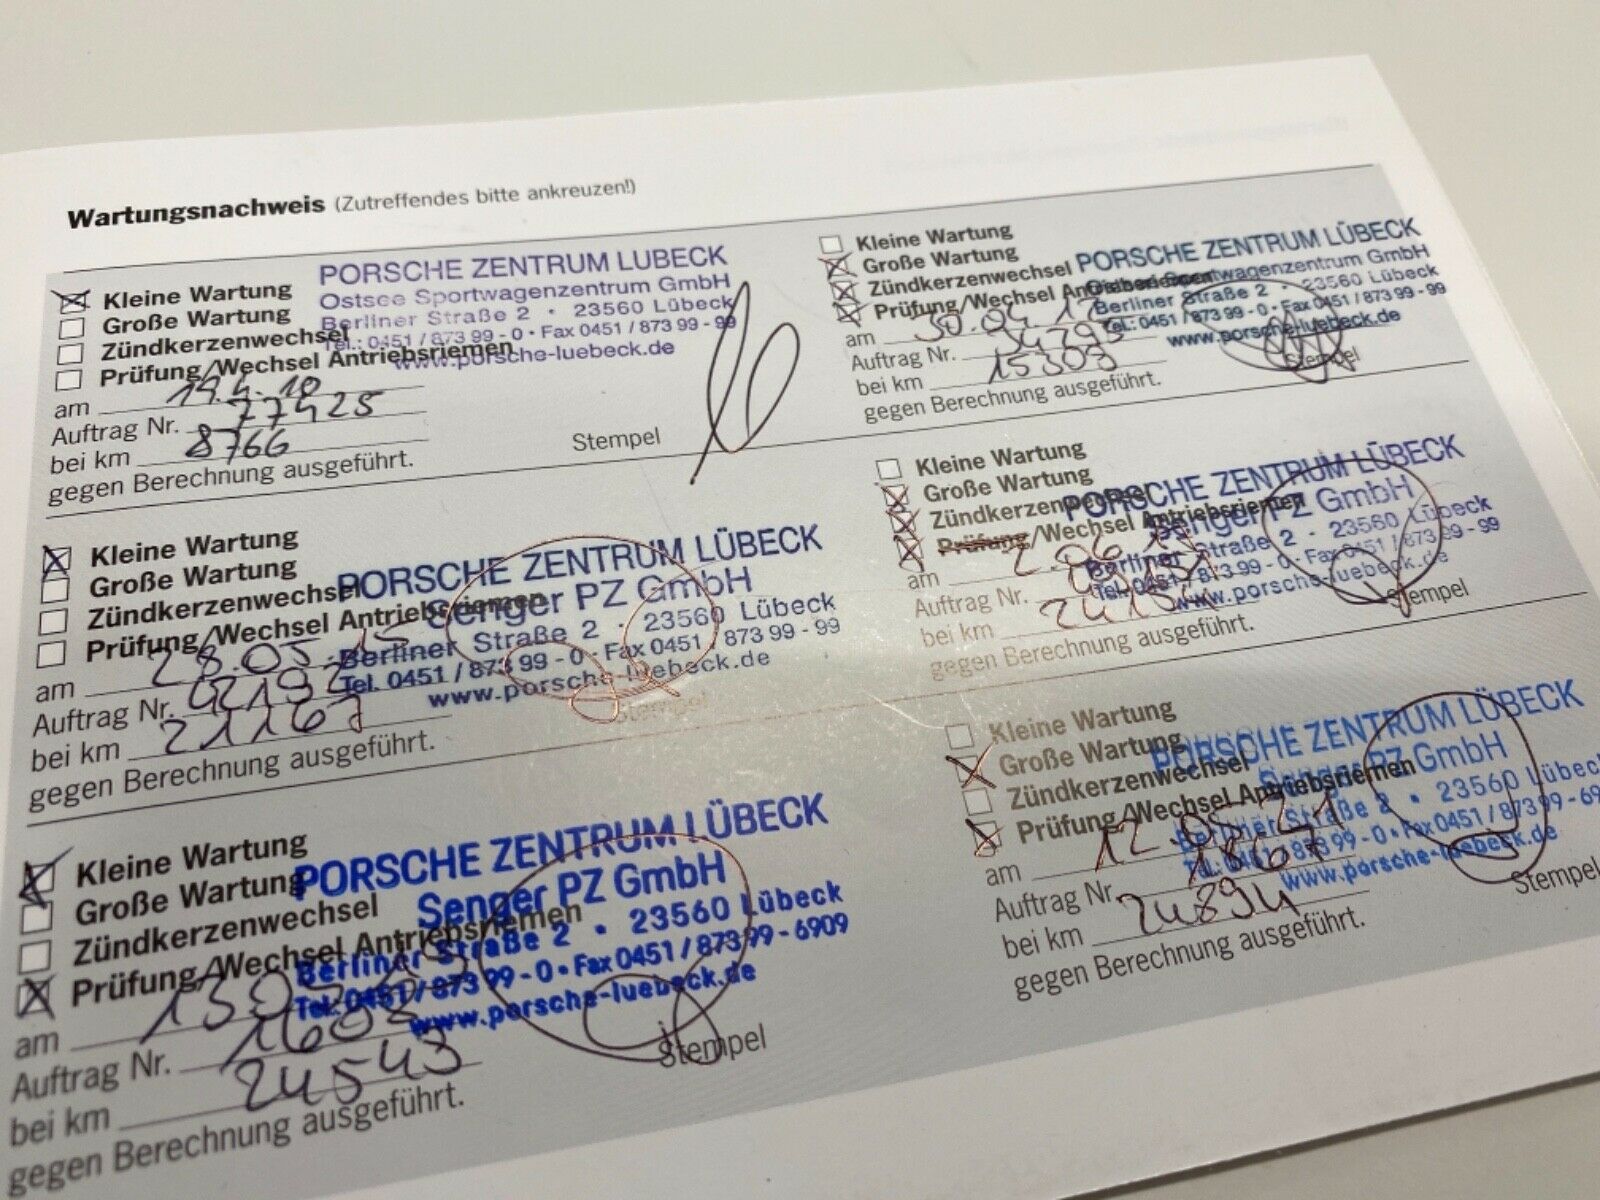 Wartungsnachweis (Zutreffendes bitte ankreuzen!)
Kleine Wartung
Große Wartung
Zündkerzenwechsel
Prüfung/Wechsel Antriebsriemen
am 19.4.10
Auftrag Nr. 77425
bei km 8766
gegen Berechnung ausgeführt.
PORSCHE ZENTRUM LÜBECK
Ostsee Sportwagenzentrum GmbH
Berliner Straße 2 · 23560 Lübeck
Tel.: 0451 / 873 99 - 0 · Fax 0451 / 873 99 - 99
www.porsche-luebeck.de
Stempel
Kleine Wartung
Große Wartung
Zündkerzenwechsel
Prüfung/Wechsel Antriebsriemen
am 30.04.12
Auftrag Nr. 34793
bei km 15303
gegen Berechnung ausgeführt.
PORSCHE ZENTRUM LÜBECK
Sportwagenzentrum GmbH
Berliner Straße 2 · 23560 Lübeck
Tel.: 0451 / 873 99 - 0 · Fax 0451 / 873 99 - 99
www.porsche-luebeck.de
Stempel
Kleine Wartung
Große Wartung
Zündkerzenwechsel
Prüfung/Wechsel Antriebsriemen
am 28.05.15
Auftrag Nr.
bei km 21167
gegen Berechnung ausgeführt.
PORSCHE ZENTRUM LÜBECK
Senger PZ GmbH
Berliner Straße 2 · 23560 Lübeck
Tel. 0451 / 873 99 - 0 · Fax 0451 / 873 99 - 99
www.porsche-luebeck.de
Stempel
Kleine Wartung
Große Wartung
Zündkerzenwechsel
Prüfung/Wechsel Antriebsriemen
am
Auftrag Nr.
bei km
gegen Berechnung ausgeführt.
PORSCHE ZENTRUM LÜBECK
Senger PZ GmbH
Berliner Straße 2 · 23560 Lübeck
Tel. 0451 / 873 99 - 0 · Fax 0451 / 873 99 - 99
www.porsche-luebeck.de
Stempel
Kleine Wartung
Große Wartung
Zündkerzenwechsel
Prüfung/Wechsel Antriebsriemen
am
Auftrag Nr.
bei km 24543
gegen Berechnung ausgeführt.
PORSCHE ZENTRUM LÜBECK
Senger PZ GmbH
Berliner Straße 2 · 23560 Lübeck
Tel. 0451 / 873 99 - 0 · Fax 0451 / 873 99 - 6909
www.porsche-luebeck.de
Stempel
Kleine Wartung
Große Wartung
Zündkerzenwechsel
Prüfung/Wechsel Antriebsriemen
am
Auftrag Nr.
bei km 24894
gegen Berechnung ausgeführt.
PORSCHE ZENTRUM LÜBECK
Senger PZ GmbH
Berliner Straße 2 · 23560 Lübeck
Tel. 0451 / 873 99 - 0 · Fax 0451 / 873 99 - 69
www.porsche-luebeck.de
Stempel